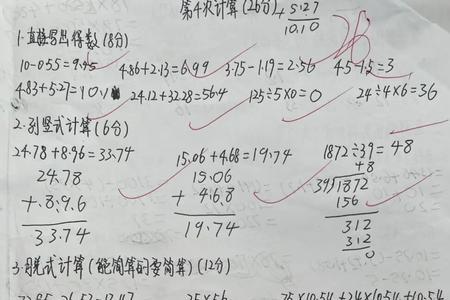 第4次计算(26分)
+ 5.27
10.10
26
1.直接写出得数(8分)
10-0.55=9.45 4.86+2.13=6.99 3.75-1.19=2.56 4.5-1.5=3
4.83+5.27=10.1 24.12+32.28=56.4 125÷5×0=0 24÷4×6=36
2.列竖式计算(6分)
24.78+8.96=33.74 15.06+4.68=19.74 1872÷39=48
24.78 15.06 48
+ 8.96 + 4.68 39)1872
33.74 19.74 156
312
312
0
3.脱式计算(能简算的要简算)(12分)